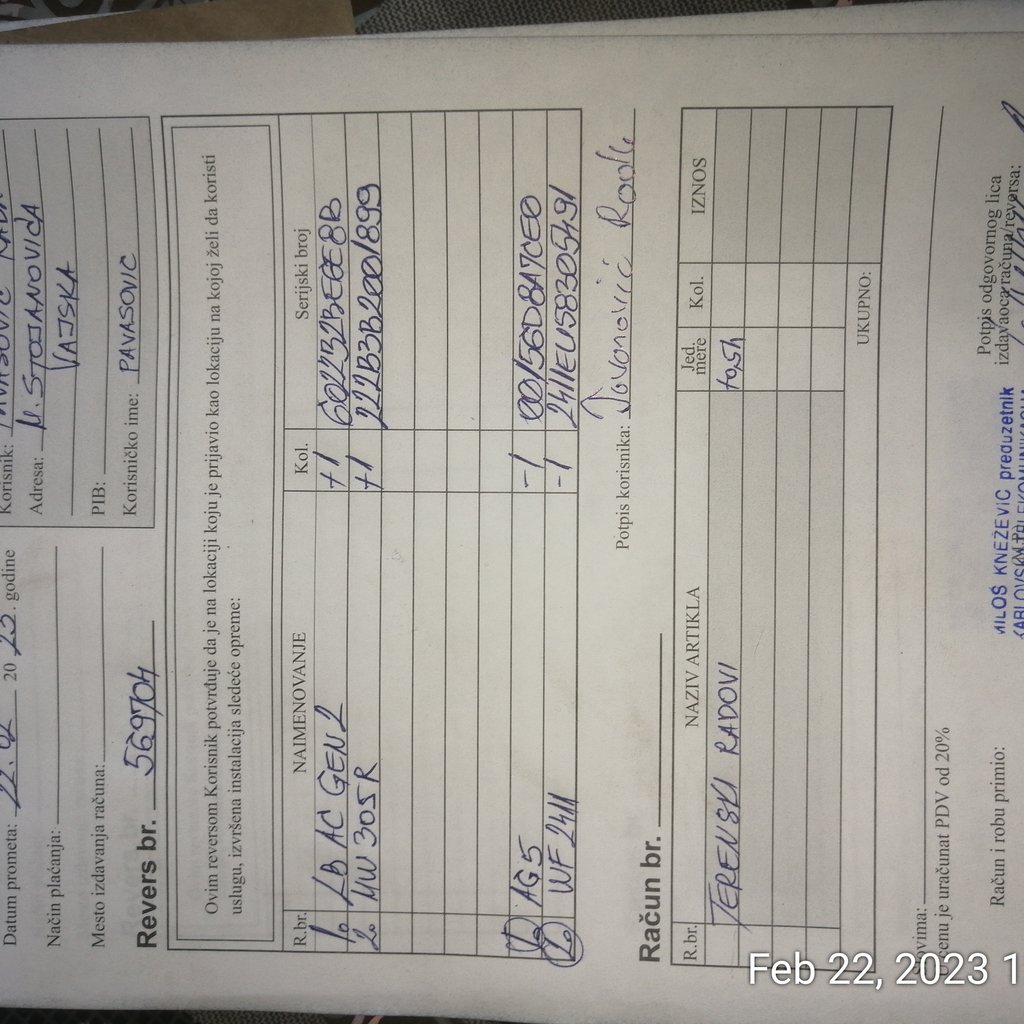 Datum prometa: 22.02 20 23. godine
Način plaćanja:
Mesto izdavanja računa:
Korisnik: PAVASOVIĆ RADA
Adresa: M. STOJANOVIĆA
VAJSKA
PIB:
Korisničko ime: PAVASOVIC
Revers br. 569704
Ovim reversom Korisnik potvrđuje da je na lokaciji koju je prijavio kao lokaciju na kojoj želi da koristi
uslugu, izvršena instalacija sledeće opreme:
R.br. NAIMENOVANJE Kol. Serijski broj
1. LB AC GEN2 +1
2. MW 305R +1 222B3B2001899
1. AG5 -1 00156D8A7CE0
2. WF 2411 -1 2411EU5830S491
Potpis korisnika:
Račun br.
R.br. NAZIV ARTIKLA Jed. mere Kol. IZNOS
TERENSKI RADOVI
UKUPNO:
U cenu je uračunat PDV od 20%
Račun i robu primio:
Potpis odgovornog lica
izdavaoca računa/reversa:
MILOŠ KNEŽEVIĆ preduzetnik
Feb 22, 2023 1